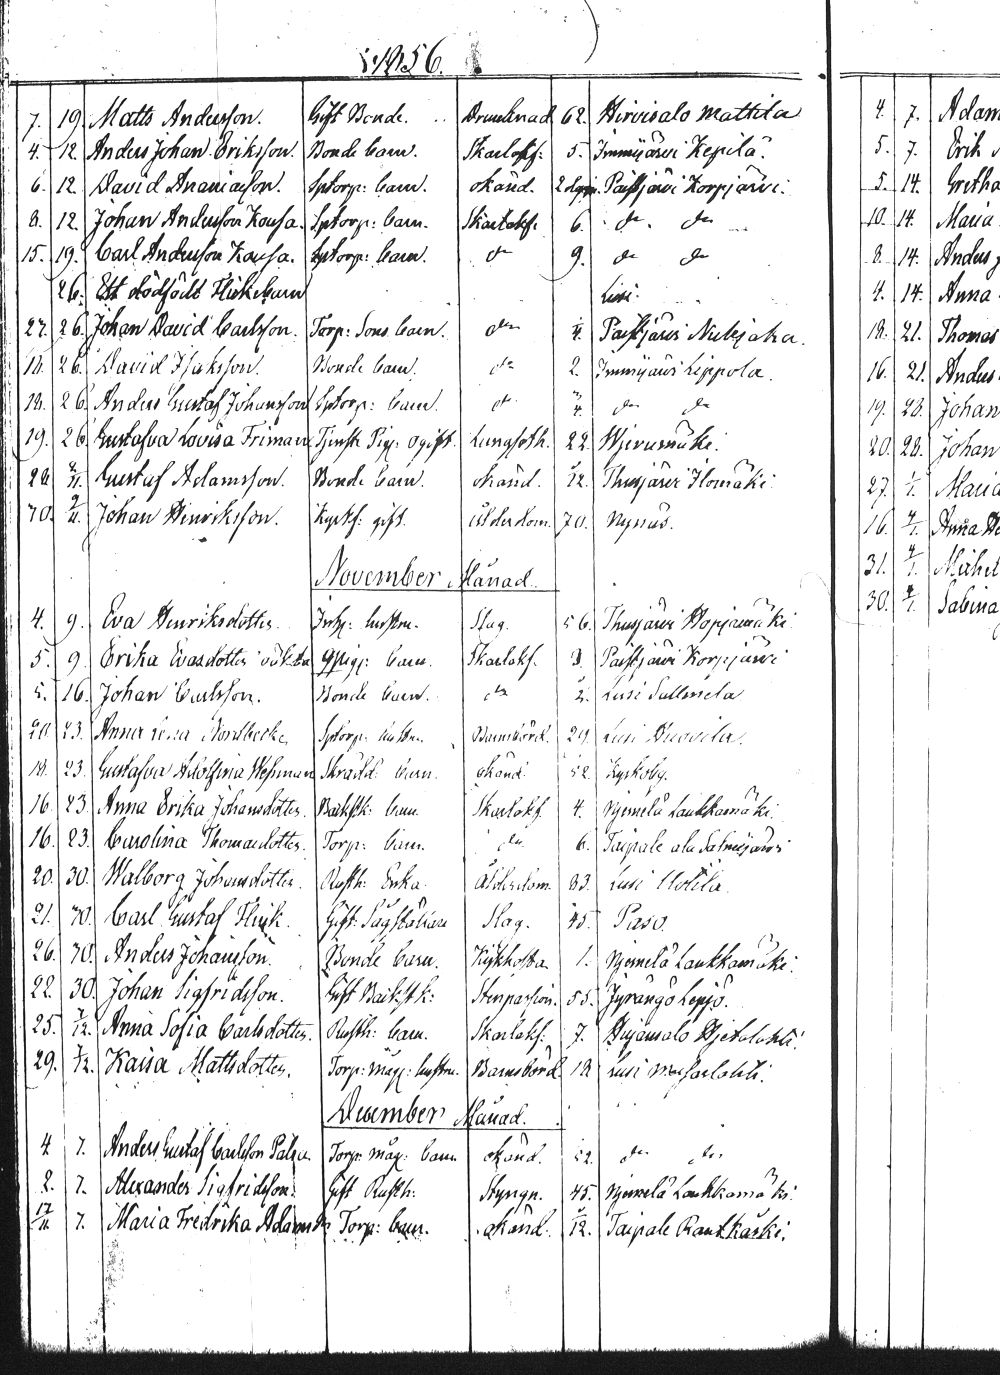 1856.
7. 19. Matts Andersson. Gift Bonde. Drunknad 62. Hirvisalo Mattila
4. 12. Anders Johan Eriksson. Bonde barn. Skarlakf: 5. Immijärvi Kepilä.
6. 12. David Ananiasson. Sptorp: barn. okänd. Paistjärvi Korpjärvi.
8. 12. Johan Andersson Kausa. Sptorp: barn. Skarlakf: 6. do do
15. 19. Carl Andersson Kausa. Sptorp: barn. do 9. do do
26. Ett dödfödt Flickebarn Lusi.
27. 26. Johan David Carlsson. Torp: Sons barn. do Paistjärvi
18. 26. David Isaksson. Bonde barn. do 2. Immijärvi Lippola.
18. 26. Anders Gustaf Johansson Sptorp: barn. do 3/4. do do
19. 26. Gustafva Lovisa Friman Tjenste Pig: ogift. Lungsoth. 22. Wierumäki.
28. 2/11. Gustaf Adamsson. Bonde barn. okänd. Thusjärvi Ilomäki.
30. 2/11. Johan Henriksson. Kyrkf: gift. ålderdom. 70. Nynäs.
November Månad.
4. 9. Eva Henriksdotter Inhy: hustru. Slag. 56. Thusjärvi Hopjamäki.
5. 9. Erika Evasdotter barn. Skarlakf. 3. Paistjärvi Korpjärvi
5. 16. Johan Carlsson. Bonde barn. do Lusi Sallmela
20. 23. Anna Lena Nordbeck. Sptorp: hustru. Barnsbörd. 29. Lusi Huovila.
18. 23. Gustafva Adolfina Wessman Skrädd: barn. okänd. Kyrkoby.
16. 23. Anna Erika Johansdotter. barn. Skarlakf 4. Njemelä Laukkamäki.
16. 23. Carolina Thomasdotter. Torp: barn. do 6. Taipale ala Salmijärvi
20. 30. Walborg Johansdotter. Rusth: Enka. Ålderdom. 83. Lusi Uotila.
21. 30. Carl Gustaf Flink. Gift Slag. 45. Paso.
26. 30. Anders Johansson. Bonde barn. Kikhosta 1. Njemelä Laukkamäki.
22. 30. Johan Sigfridsson. Gift Stenpassion. 55. Jyrängö Leppjö.
25. 7/12. Anna Sofia Carlsdotter. Rusth: barn. Skarlakf: 7. Hujansalo Hjetalahti.
29. 7/12. Kaisa Mattsdotter. Torp: måg: hustru. Barnsbörd. 18 Lusi Myllärlahti.
December Månad.
4 7. Anders Gustaf Carlsson Torp: måg: barn okänd. do do
2. 7. Alexander Sigfridsson. Gift Rusth: Styngn. 45. Njemelä Laukkamäki.
17/11. 7. Maria Fredrika Adamsdr Torp: barn. okänd. Taipale Rautkäski.
4. 7. Adam
5. 7. Erik
5. 14. Gretha
10. 14. Maria
8. 14. Anders
4. 14. Anna
18. 21. Thomas
16. 21. Anders
19. 28. Johan
20. 28. Johan
27. 1/1. Maria
16. 4/1. Anna
31. 4/1. Michel
30. 4/1. Sabina